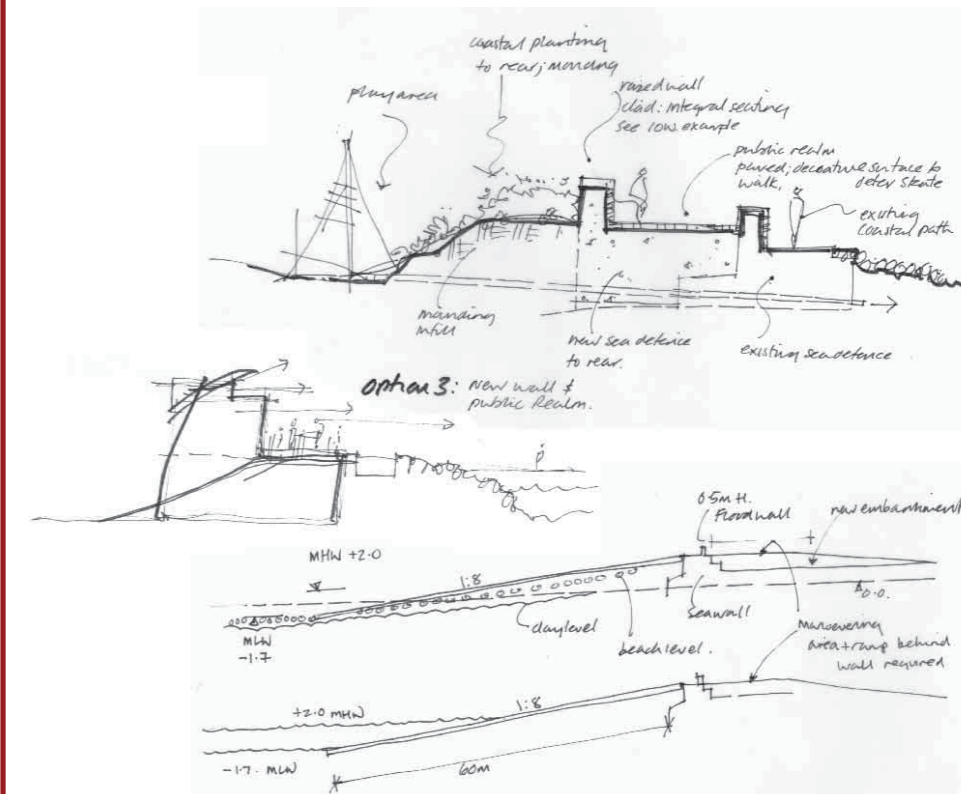 coastal planting
to rear; mounding
play area
raised wall
clad: integral seating
see low example
public realm
paved;
surface to
walk,
deter skate
existing
coastal path
mounding
infill
new sea defence
to rear.
existing sea defence
option 3: New wall &
public Realm.
0.5m H.
Floodwall
new embankment
MHW +2.0
1:8
MLW
-1.7
clay level
beach level.
Seawall
0.0.
Manoevering
area + ramp behind
wall required
+2.0 MHW
1:8
-1.7. MLW
60m